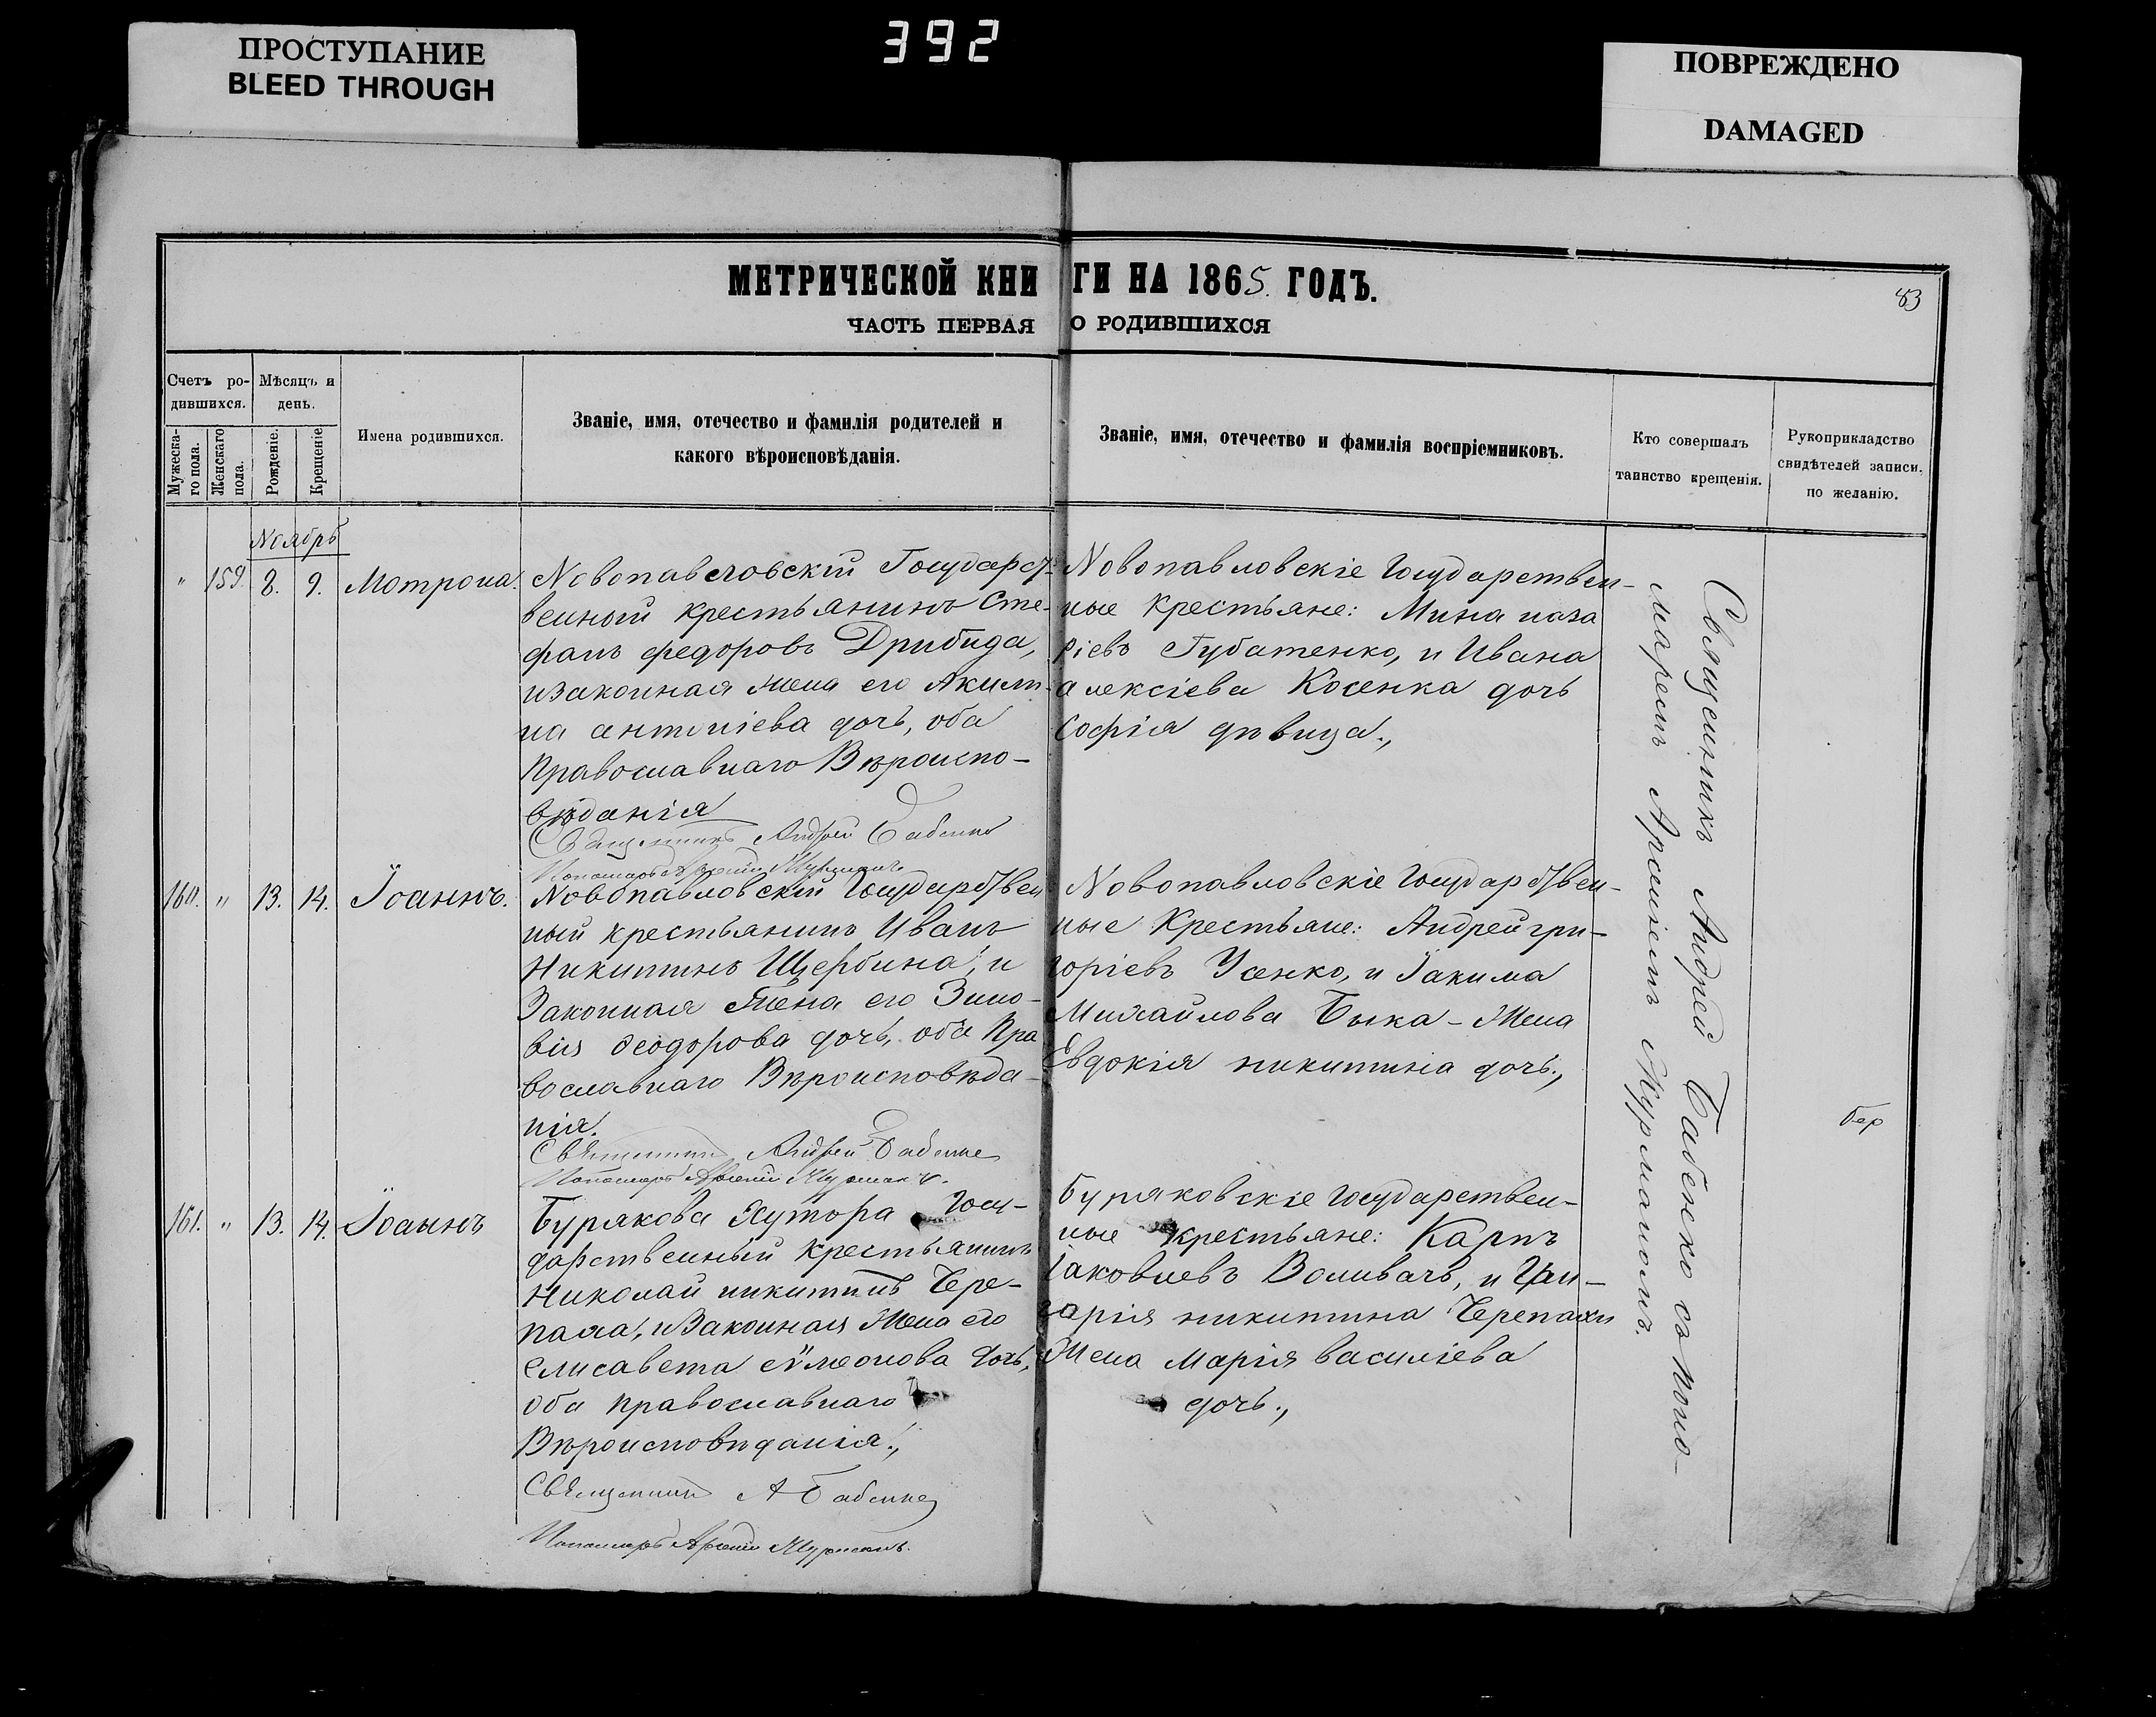 ПРОСТУПАНИЕ
BLEED THROUGH
392
ПОВРЕЖДЕНО
DAMAGED
МЕТРИЧЕСКОЙ КНИГИ НА 1865. ГОДЪ.
83
ЧАСТЬ ПЕРВАЯ О РОДИВШИХСЯ
Счетъ ро-
дившихся.
Мужеска-
го пола.
Женскаго
пола.
Мѣсяцъ и
день.
Рожденіе.
Крещеніе
Имена родившихся.
Званіе, имя, отечество и фамилія родителей и
какого вѣроисповѣданія.
Званіе, имя, отечество и фамилія воспріемниковъ.
Кто совершалъ
таинство крещенія.
Рукоприкладство
свидѣтелей записи.
по желанію.
Ноябрь
" 159. 8. 9. Мотрона.
Новопавловскій Государст-
венный крестьянинъ Сте-
фанъ федоровъ Дрибида,
изаконная жена его Акили-
на антоніева дочь, оба
Православнаго Вѣроиспо-
вѣданія
Священникъ Андрей Бабенко
Пономарь Арсеній Журманъ
Новопавловскіе Государствен-
ные крестьяне: Мина наза
ріевъ Губатенко, и Ивана
алексіева Косенка дочь
Софія дѣвица.,
160. " 13. 14. Іоаннъ.
Новопавловскій Государствен
ный крестьянинъ Иванъ
Никитинъ Щербина, и
Законная жена его Зино-
вія Феодорова дочь, оба Пра
вославнаго Вѣроисповѣда-
нія.
Священникъ Андрей Бабенко
Пономарь Арсеній Журманъ.
Новопавловскіе Государствен-
ные Крестьяне: Андрей гри-
горіевъ Усенко, и Іакима
Михайлова Быка - Жена
Евдокія никитина дочь.,
161. " 13. 14. Іоаннъ
Бурякова Хутора Госу-
дарственный Крестьянинъ
Николай никитинъ Чере-
паха, изаконная жена его
Елисавета сѵмеонова дочь,
оба православнаго
Вѣроисповѣданія.,
Священникъ А Бабенко
Пономарь Арсеній Журманъ.
Буряковскіе Государствен-
ные крестьяне: Карпъ
Іаковлевъ Воливачъ, и Гри-
горія никитина Черепахи
Жена Марія василіева
дочь.,
Священникъ Андрей Бабенко съ поно-
маремъ Арсеніемъ Журманомъ.